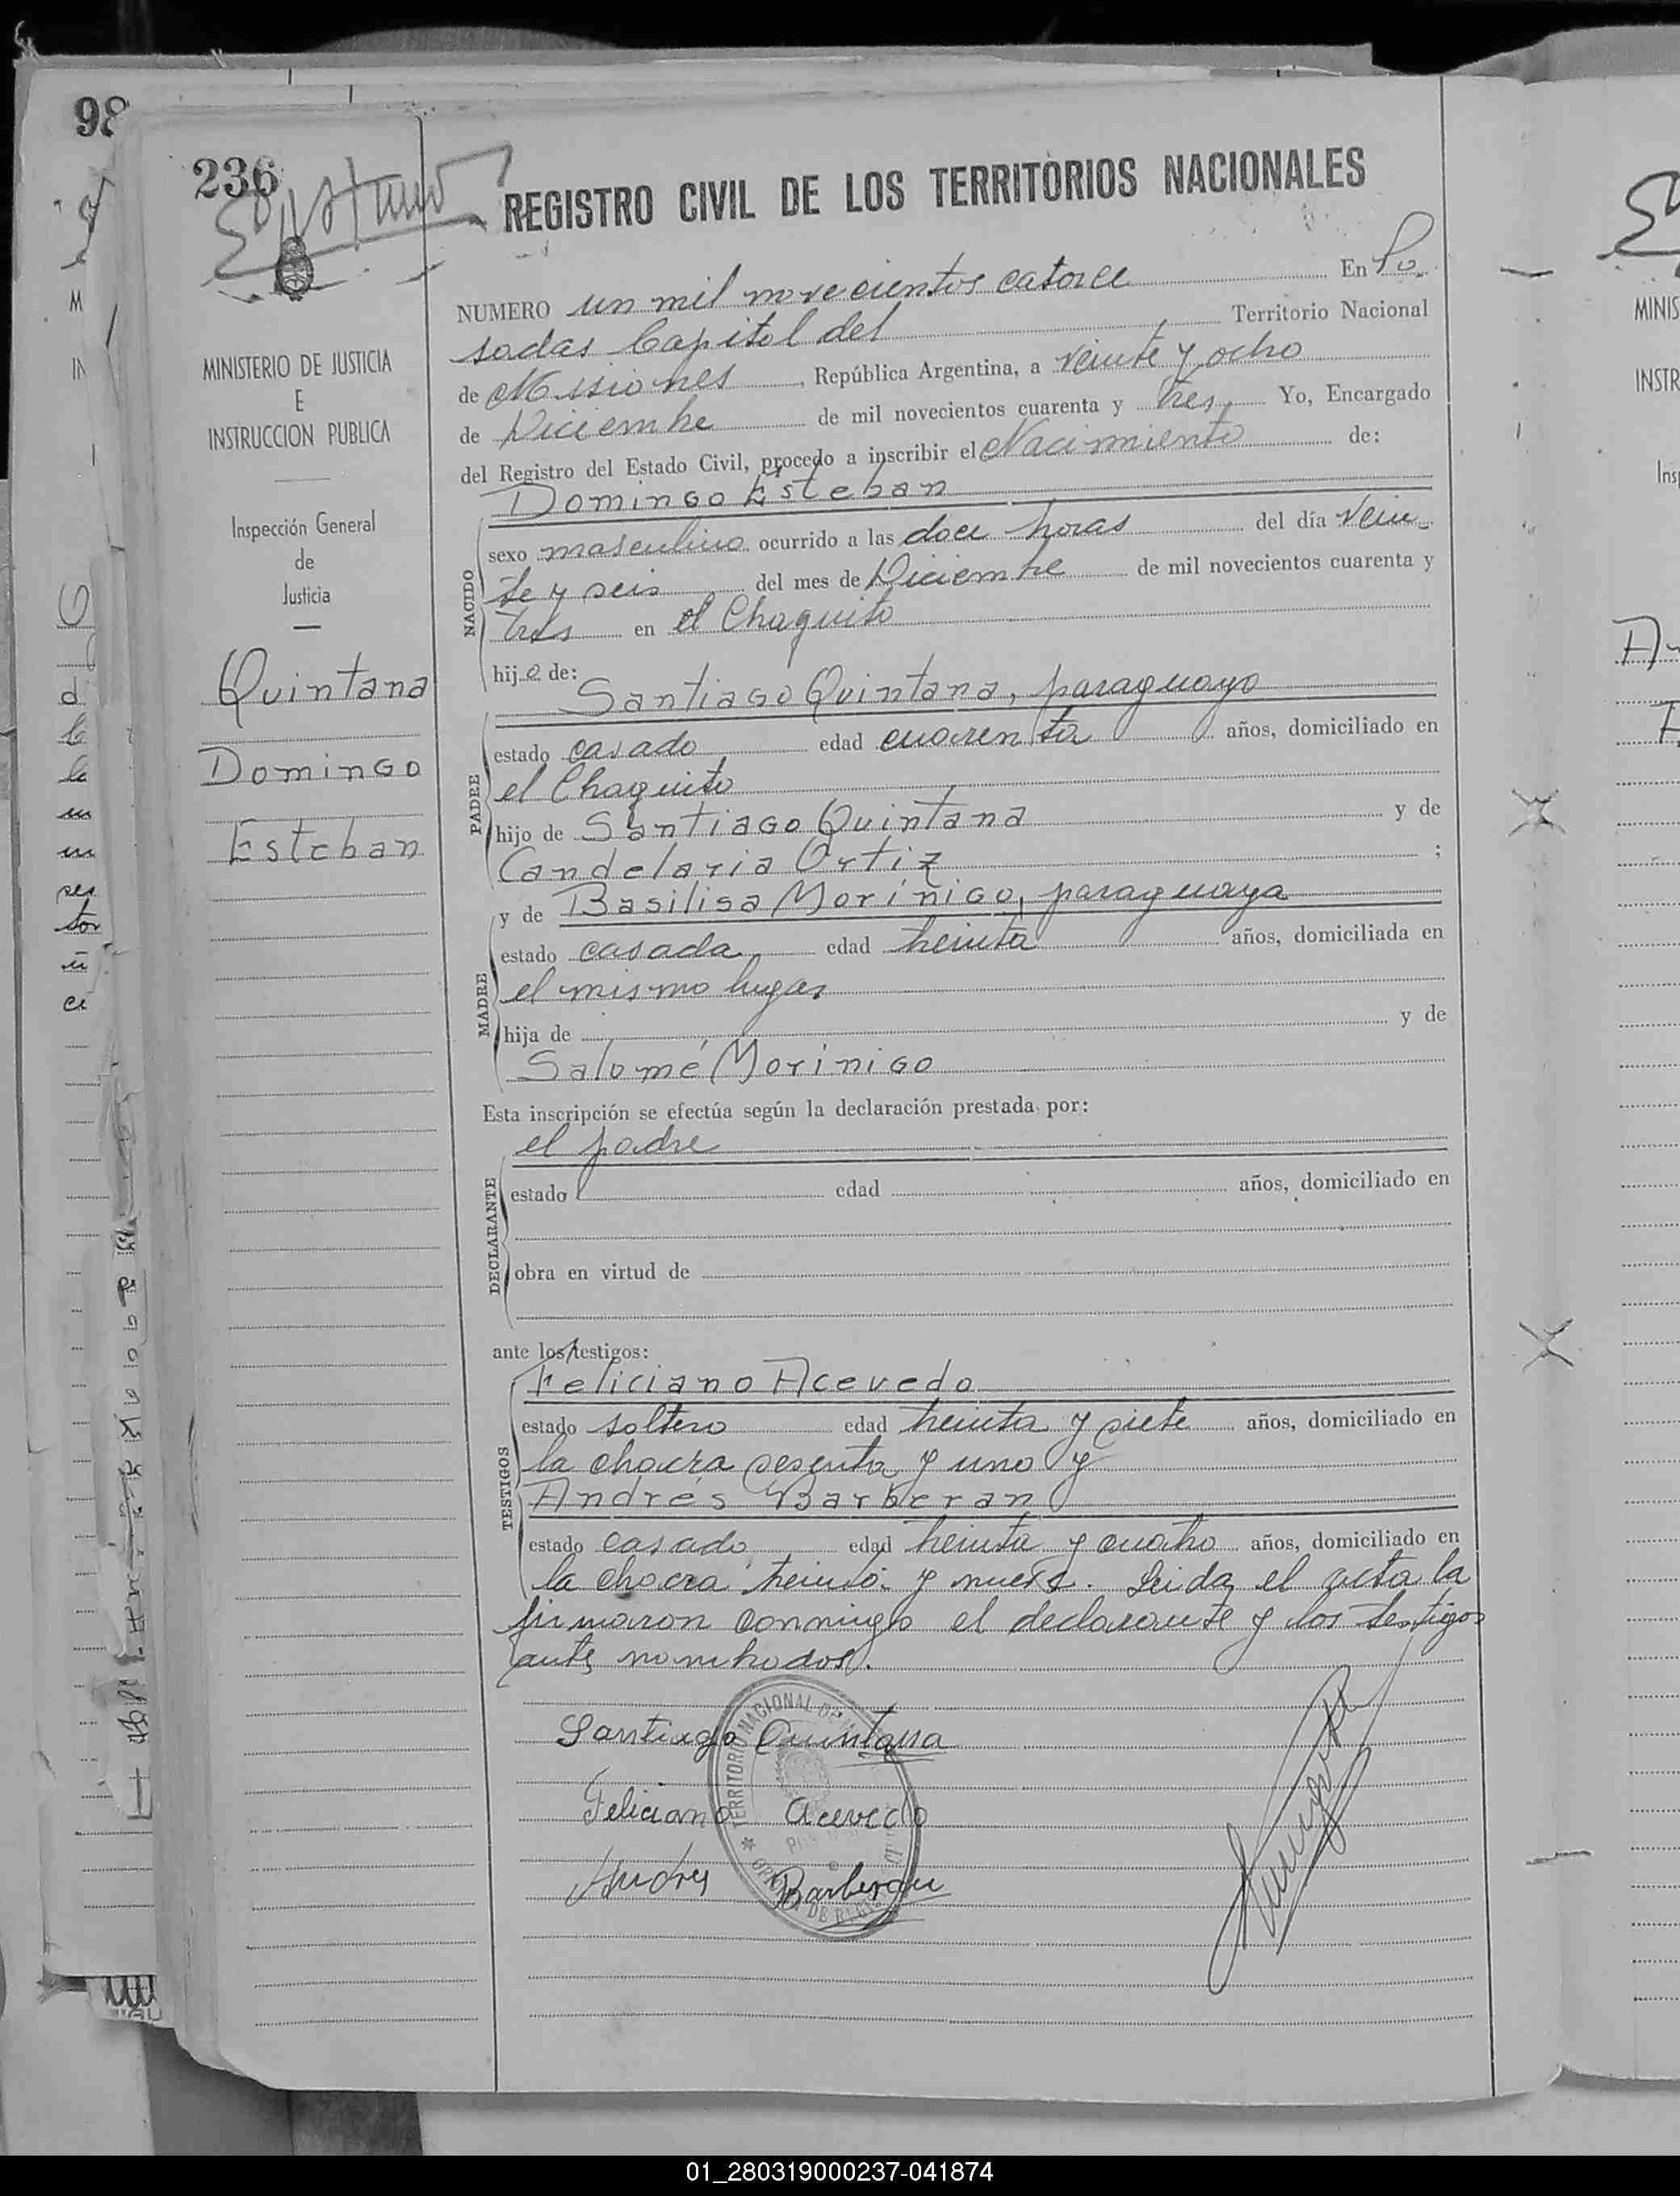 98
236
REGISTRO CIVIL DE LOS TERRITORIOS NACIONALES
NUMERO un mil novecientos catorce En Po
sadas Capital del Territorio Nacional
de Misiones, República Argentina, a veinte y ocho
de Diciembre de mil novecientos cuarenta y tres, Yo, Encargado
del Registro del Estado Civil, procedo a inscribir el Nacimiento de:
Domingo Esteban
NACIDO
sexo masculino ocurrido a las doce horas del día vein
te y seis del mes de Diciembre de mil novecientos cuarenta y
tres en el Chaquito
hijo de:
Santiago Quintana, paraguayo
PADRE
estado casado edad cuarenta años, domiciliado en
el Chaquito
hijo de Santiago Quintana y de
Candelaria Ortiz ;
y de Basilisa Moriñigo, paraguaya
MADRE
estado casada edad treinta años, domiciliada en
el mismo lugar
hija de y de
Salomé Morinigo
Esta inscripción se efectúa según la declaración prestada por:
el padre
DECLARANTE
estado edad años, domiciliado en
obra en virtud de
ante los testigos:
Feliciano Acevedo
TESTIGOS
estado soltero edad treinta y siete años, domiciliado en
la chacra sesenta y uno y
Andrés Barberan
estado casado edad treinta y cuatro años, domiciliado en
la chacra treinta y nueve. Leida el acta la
firmaron conmigo el declarante y los testigos
ante nombrados.
Santiago Quintana
Feliciano Acevedo
Andres Barberan
TERRITORIO NACIONAL DE
MINISTERIO DE JUSTICIA
E
INSTRUCCION PUBLICA
Inspección General
de
Justicia
Quintana
Domingo
Esteban
MINIS
INSTR
Ins
01_280319000237-041874